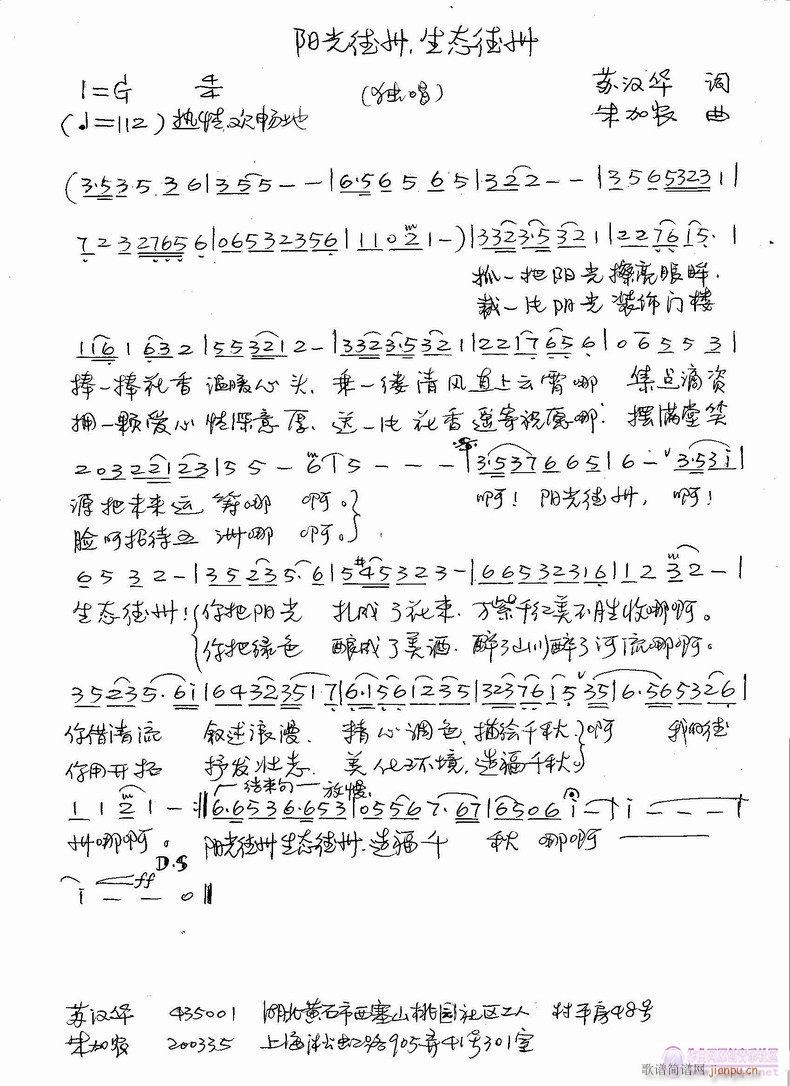 阳光德州,生态德州
1=G 4/4 (独唱) 苏汉华 词
(♩=112) 热情欢畅地 朱加农 曲
(3·535 36|355--|6·56565|322--|35653231|
7232765 6|06532356|1102 1-)|3323·5321|22761 5·|
抓一把阳光擦亮眼眸.
裁一片阳光装饰门楼
1161 632|5532 12-|3323·5321|2217656|06553|
捧一捧花香温暖心头、乘一缕清风直上云霄哪 集点滴资
拥一颗爱心情深意厚、送一片花香遥寄祝愿哪. 摆满堂笑
2032 2123|55-6|5---|3·537665|6-3·53i|
源把未来运筹哪 啊。 啊!阳光德州, 啊!
脸呵招待五洲哪 啊。
6532-|35235·6|5#45323-|66532316|1232-|
生态德州!你把阳光 扎成了花束.万紫千红美不胜收哪啊。
你把绿色 酿成了美酒.醉了山川醉了河流哪啊。
35235·6i|64323517|6·1561235|3237615 35|6·565326|
你借清流 叙述浪漫、精心调色,描绘千秋.啊 我的德
你用开拓 抒发壮志.美化环境,造福千秋。
结束句 放慢
1121-:‖6·6536·653|05567·67|6506i-|i---|
州哪啊。 阳光德州生态德州.造福千 秋 哪啊
D.S ff
i--0‖
苏汉华 435001 湖北黄石市西塞山桃园社区工人村平房48号
朱加农 200335 上海淞虹路905弄41号301室
歌谱简谱网 jianpu.cn